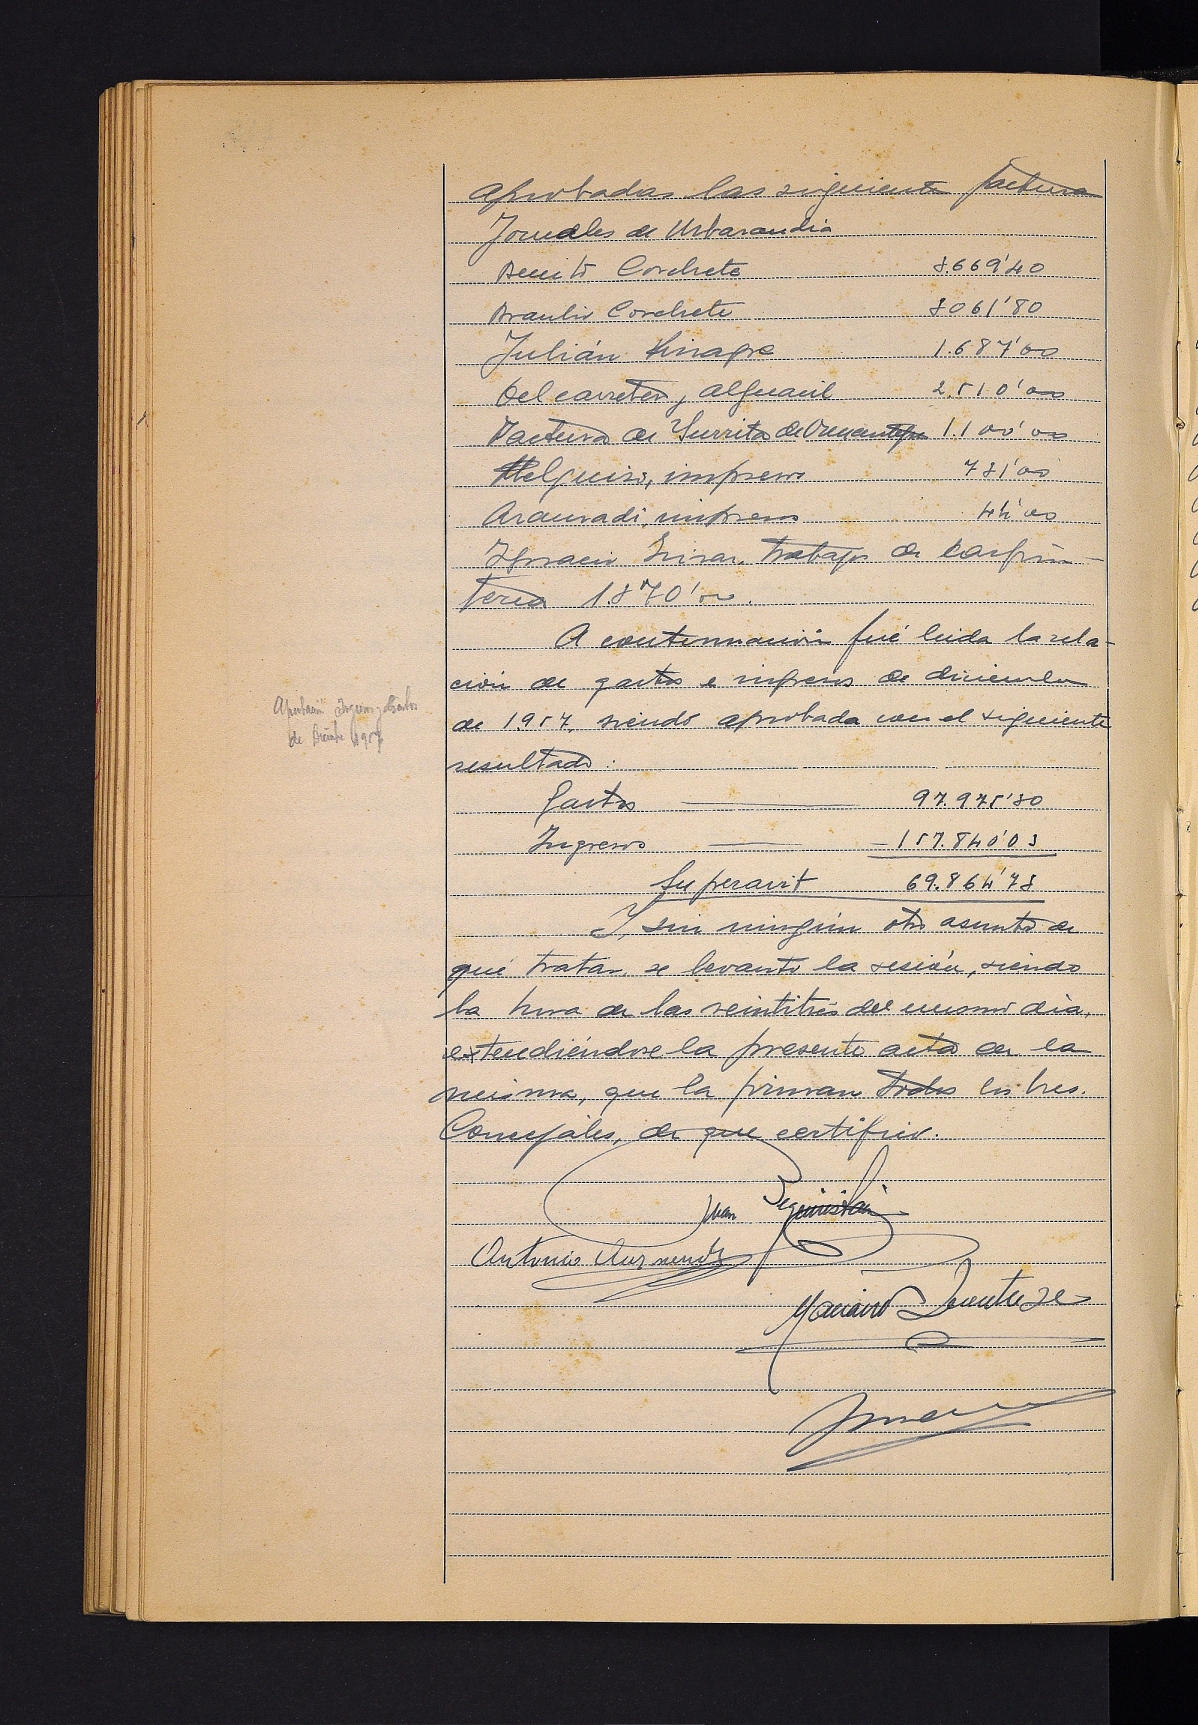 aprobadas las siguiente factura
Jornales de Urbarandia
Benito Corchete 3.669'40
Braulio Corchete 3061'80
Julián Vinagre 1.687'00
Del carretero y alguacil 2.510'00
Factura de Zurrita de 1.100'00
Helguiro, impreso 731'00
Aramradi, impreso 44'00
Ignacio Irizar, trabajo de carpin-
teria 1.870'00.
A continuación fué leida la rela-
ción de gastos e ingresos de diciembre
Aprobación Ingresos y Gastos
de Dicmbre 1957
de 1957, siendo aprobada con el siguiente
resultado:
Gastos 97.975'30
Ingresos 157.840'03
Superavit 69.864'73
Y, sin ningún otro asunto de
qué tratar, se levantó la sesión, siendo
la hora de las veintitrés del mismo dia,
extendiéndose la presente acta de la
misma, que la firman todos los tres.
Concejales, de que certifico.
Juan Beguiristain
Antonio Aurmendi
Mariano